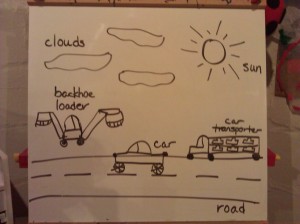 clouds
sun
backhoe
loader
car
car
transporter
road